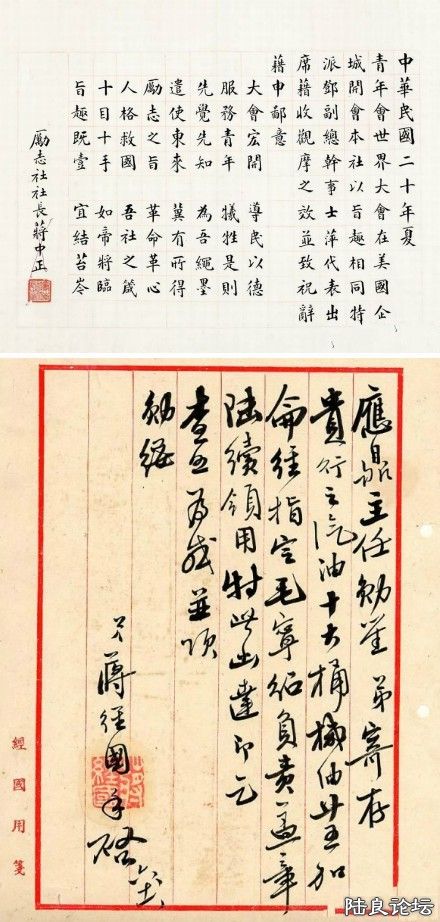 中華民國二十年夏
青年會世界大會在美國企
城開會本社以旨趣相同特
派鄧副總幹事士萍代表出
席藉收觀摩之效並致祝辭
藉申鄙意
大會宏開 導民以德
服務青年 犧牲是則
先覺先知 為吾繩墨
遣使東來 冀有所得
勵志之旨 革命革心
人格救國 吾社之箴
十目十手 如帝將臨
旨趣既壹 宜結苔岑
勵志社社長蔣中正
主任勛鑒 弟寄存
貴行之汽油十六桶機油廿五加
侖經指定毛寧紹負責蓋章
陸續領用特此函達即乞
查照為感並頌
勛綏
弟蔣經國手啓
經國用箋
陆良论坛